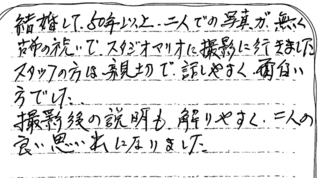 結婚して、50年以上、二人での写真が無く
姉の祝いで、スタジオマリオに撮影に行きました
スタッフの方は親切で、話しやすく、面白い
方でした。
撮影後の説明も、解りやすく、二人の
良い思い出になりました。